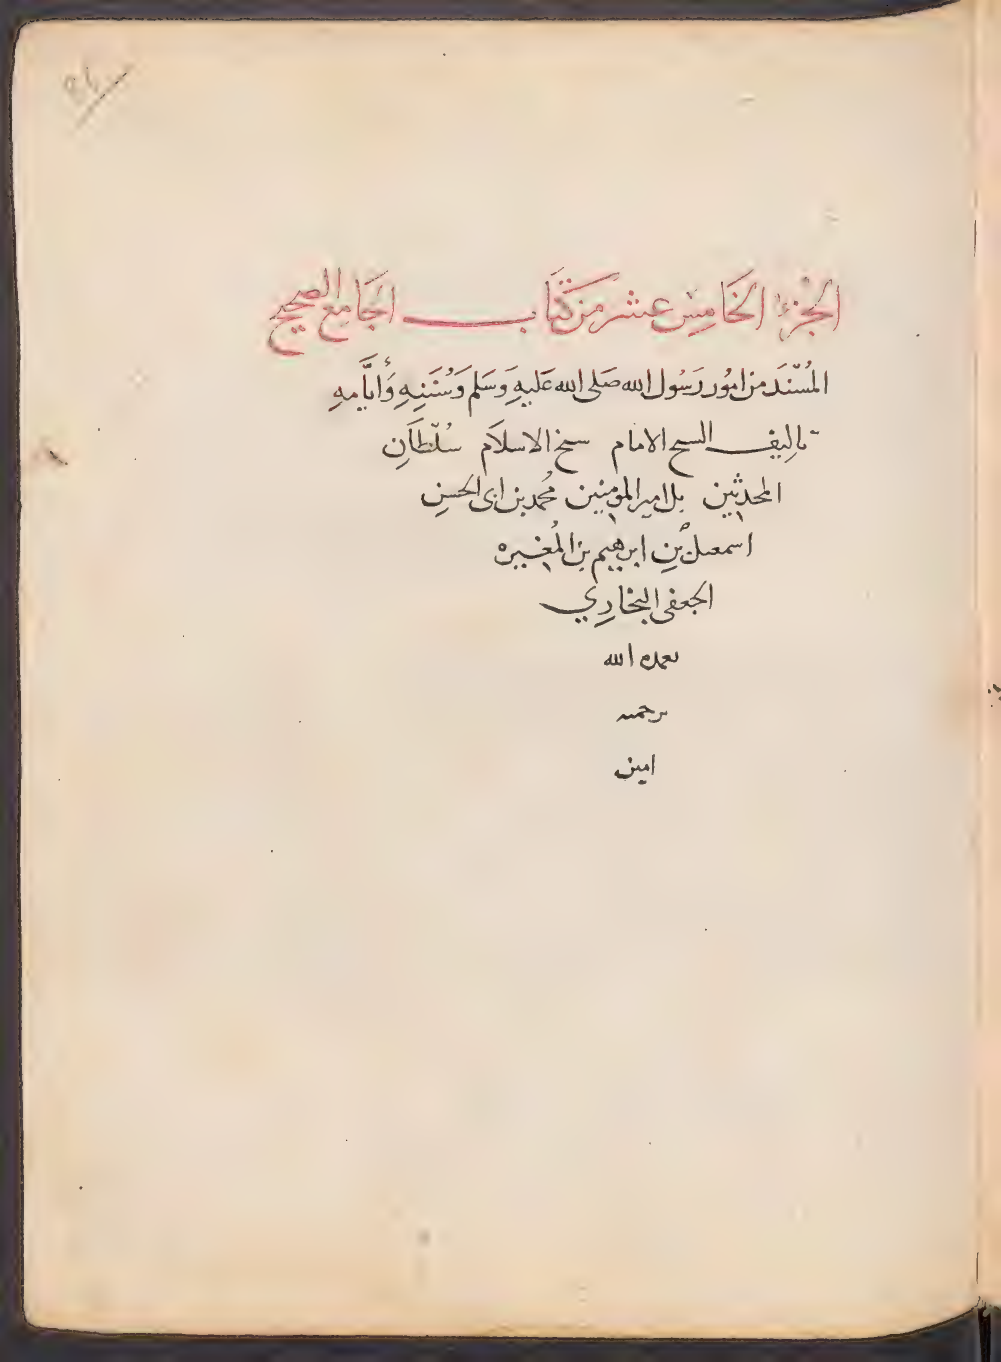 الجُزءُ الخَامِسَ عشر مِن كتَاب الجَامِع الصحيح
المُسْنَد من امُور رَسُول الله صَلى الله عَليهِ وَسَلم وَسُنَنِهِ وَأيَّامهِ
تاليف السح الامام سخ الاسلَام سُلْطَانِ
المحدثين بل امير المومنين محُمد بن ابى الحسنِ
اسمعىل بْنِ ابرهيم بن المُغيره
الجعفى البخارِي
تعمده الله
برحمته
امين